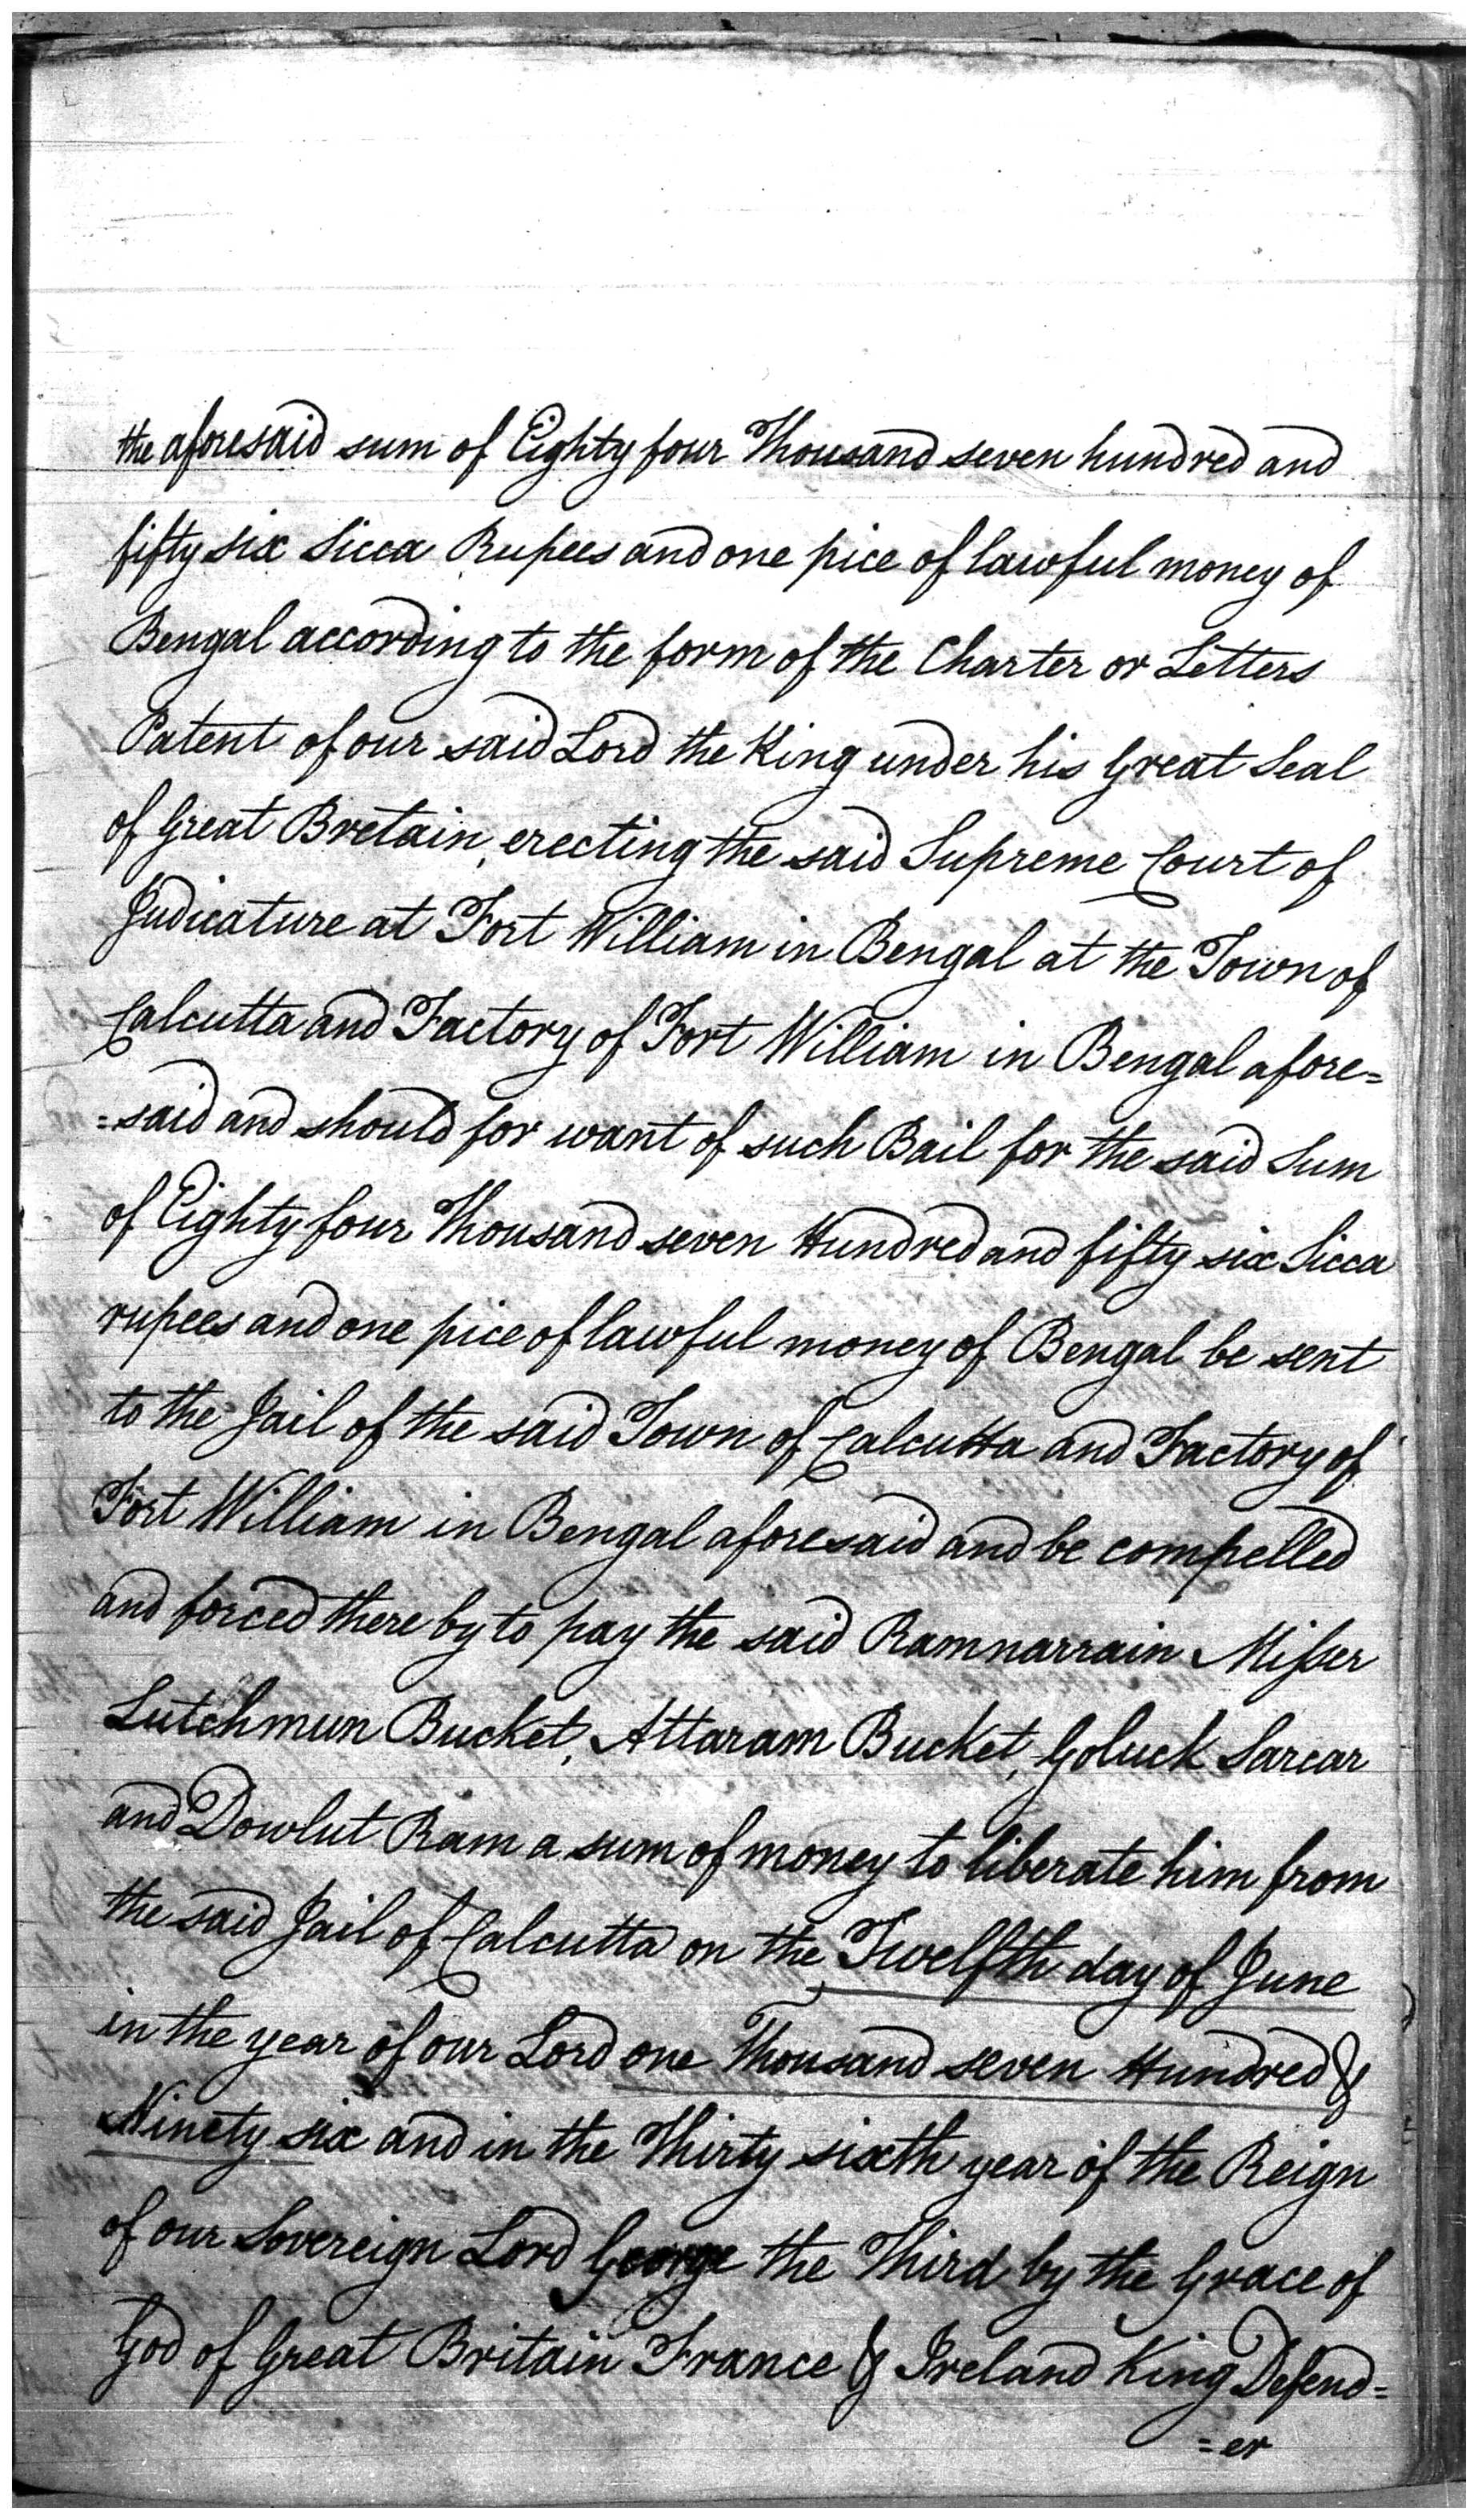 the aforesaid sum of Eighty four Thousand seven hundred and
fifty six Sicca Rupees and one pice of lawful money of
Bengal according to the form of the Charter or Letters
Patent of our said Lord the King under his Great Seal
of Great Bretain, erecting the said Supreme Court of
Judicature at Fort William in Bengal at the Town of
Calcutta and Factory of Fort William in Bengal afore=
=said and should for want of such Bail for the said Sum
of Eighty four Thousand seven Hundred and fifty six Sicca
rupees and one pice of lawful money of Bengal be sent
to the Jail of the said Town of Calcutta and Factory of
Fort William in Bengal aforesaid and be compelled
and forced there by to pay the said Ramnarrain Misser
Lutchmun Bucket, Attaram Bucket, Goluck Sarcar
and Dowlut Ram a sum of money to liberate him from
the said Jail of Calcutta on the Twelfth day of June
in the year of our Lord one Thousand seven Hundred &
Ninety six and in the Thirty sixth year of the Reign
of our Sovereign Lord George the Third by the Grace of
God of Great Britain France & Ireland King Defend=
=er